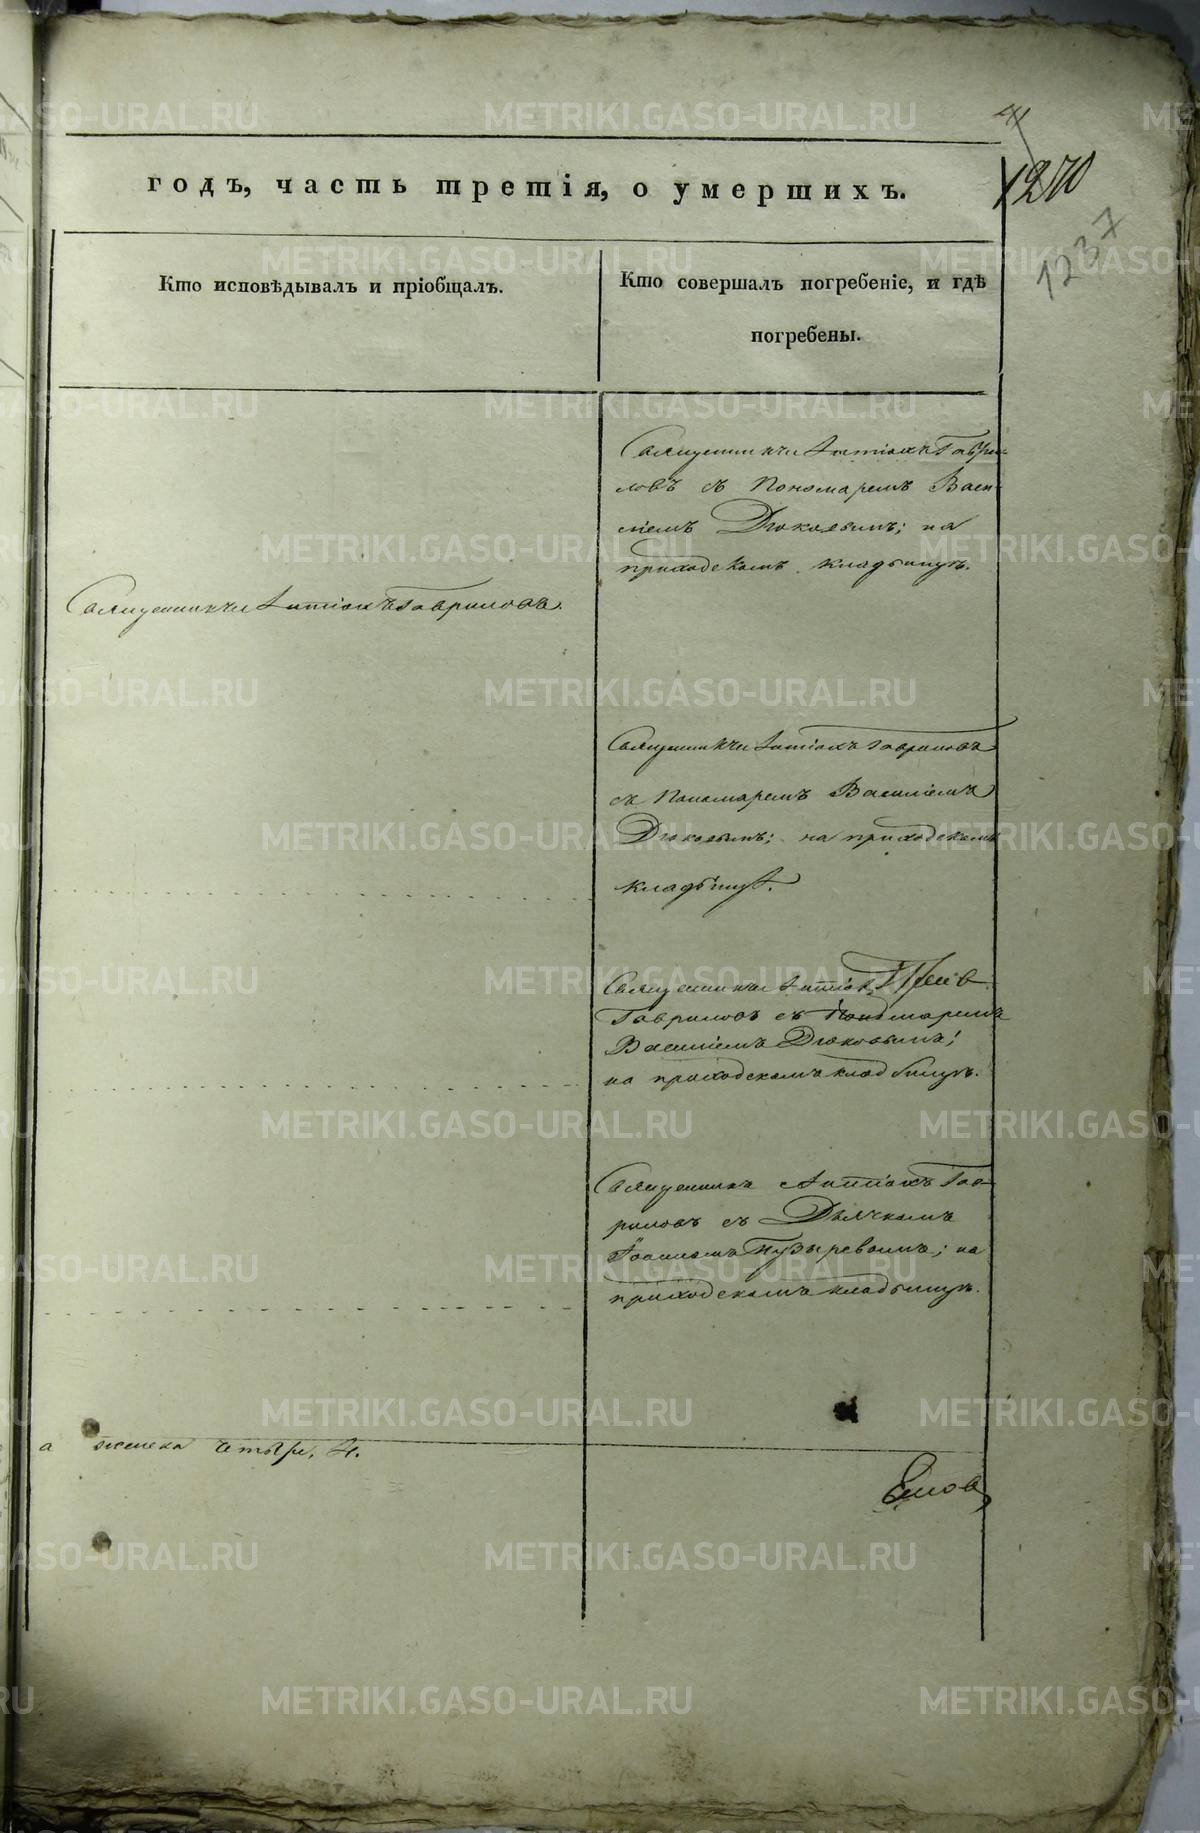 41
1270
1237
годъ, часть третія, о умершихъ.
Кто исповѣдывалъ и пріобщалъ.
Кто совершалъ погребеніе, и гдѣ
погребены.
Священникъ Антіохъ Гаври-
ловъ съ Пономаремъ Васи-
ліемъ Дюковымъ; на
приходскомъ кладбищѣ.
Священникъ Антіохъ Гавриловъ.
Священникъ Антіохъ Гавриловъ
съ Пономаремъ Василіемъ
Дюковымъ; на приходскомъ
кладбищѣ.
Священникъ Антіохъ
Гавриловъ съ Пономаремъ
Василіемъ Дюковымъ;
на приходскомъ кладбищѣ.
Священникъ Антіохъ Гав-
риловъ съ Дьячкомъ
Іоанномъ Пузыревымъ; на
приходскомъ кладбищѣ.
а женска четыре, 4.
METRIKI.GASO-URAL.RU